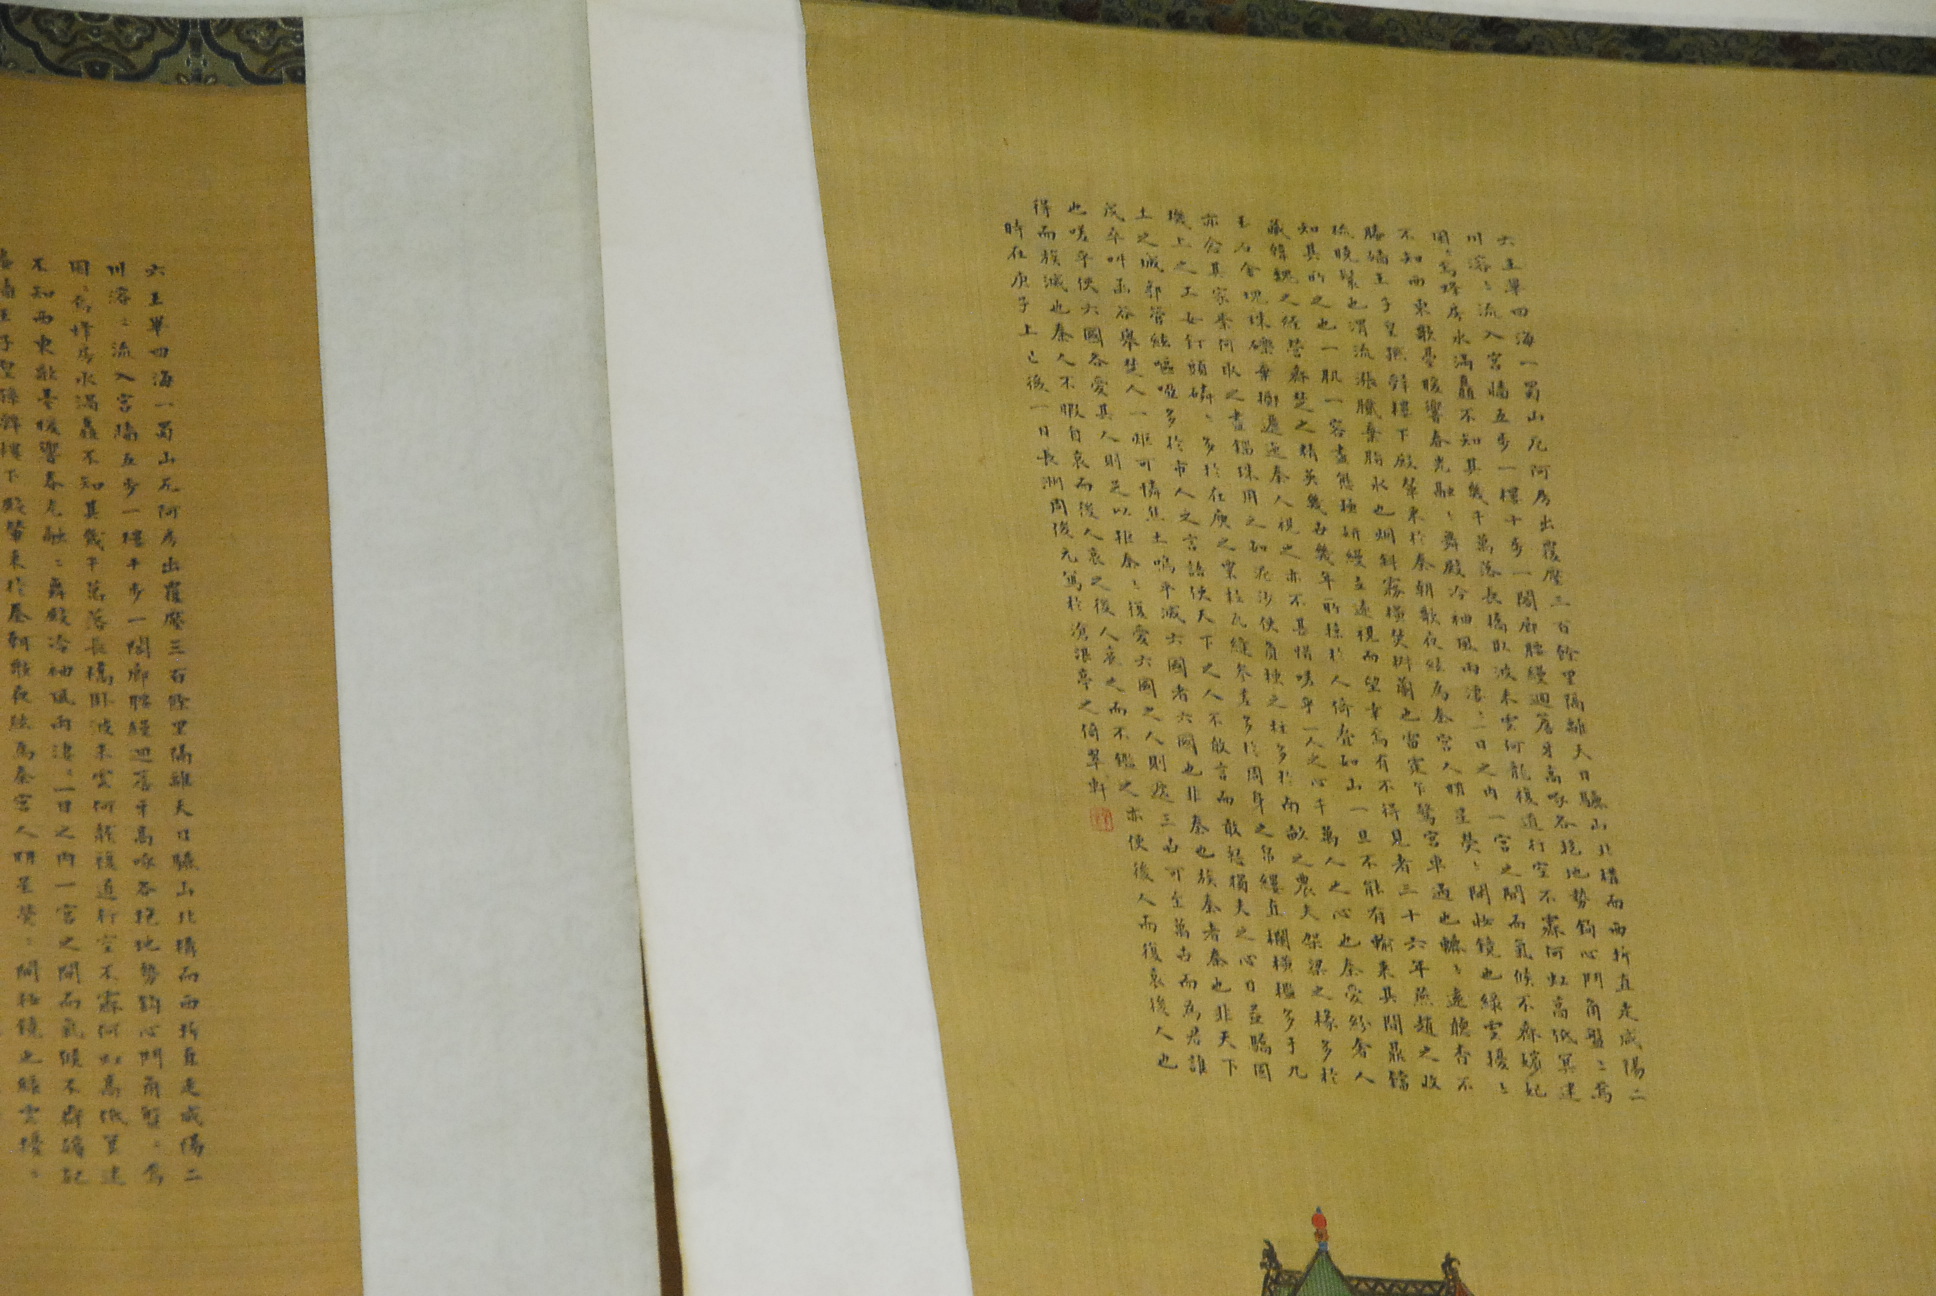 六王畢四海一蜀山兀阿房出覆壓三百餘里隔離天日驪山北構而西折直走咸陽二
川溶〻流入宮牆五步一樓十步一閣廊腰縵迴簷牙高啄各抱地勢鉤心鬥角盤〻焉
囷〻焉蜂房水渦矗不知其幾千萬落長橋臥波未雲何龍複道行空不霽何虹高低冥迷
不知西東歌臺暖響春光融〻舞殿冷袖風雨淒〻一日之內一宮之間而氣候不齊嬪妃
媵嬙王子皇孫辭樓下殿輦來於秦朝歌夜絃為秦宮人明星熒〻開妝鏡也綠雲擾〻
梳曉鬟也渭流漲膩棄脂水也烟斜霧橫焚椒蘭也雷霆乍驚宮車過也轆〻遠聽杳不
知其所之也一肌一容盡態極妍縵立遠視而望幸焉有不得見者三十六年燕趙之收
藏韓魏之經營齊楚之精英幾世幾年所掠於人倚疊如山一旦不能有輸來其間鼎鐺
玉石金塊珠礫棄擲邐迤秦人視之亦不甚惜嗟乎一人之心千萬人之心也秦愛紛奢人
亦念其家柰何取之盡錙珠用之如泥沙使負棟之柱多於南畝之農夫架梁之椽多於
機上之工女釘頭磷〻多於在庾之粟粒瓦縫參差多於周身之帛縷直欄橫檻多于九
土之城郭管絃嘔啞多於市人之言語使天下之人不敢言而敢怒獨夫之心日益驕固
戍卒叫函谷舉楚人一炬可憐焦土嗚乎滅六國者六國也非秦也族秦者秦也非天下
也嗟乎使六國各愛其人則足以拒秦〻復愛六國之人則遞三世可至萬世而為君誰
得而族滅也秦人不暇自哀而後人哀之後人哀之而不鑑之亦使後人而復哀後人也
時在庚子上巳後一日長洲周俊元寫於滄浪亭之倚翠軒
六王畢四海一蜀山兀阿房出覆壓三百餘里隔離天日驪山北構而西折直走咸陽二
川溶〻流入宮牆五步一樓十步一閣廊腰縵迴簷牙高啄各抱地勢鉤心鬥角盤〻焉
囷〻焉蜂房水渦矗不知其幾千萬落長橋臥波未雲何龍複道行空不霽何虹高低冥迷
不知西東歌臺暖響春光融〻舞殿冷袖風雨淒〻一日之內一宮之間而氣候不齊嬪妃
嬙王子皇孫辭樓下殿輦來於秦朝歌夜絃為秦宮人明星熒〻開妝鏡也綠雲擾〻